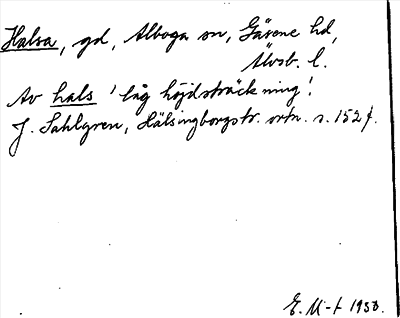 Halsa, gd, Alboga sn, Gäsene hd,
Älvsb. l.
Av hals 'låg höjdsträckning'.
J. Sahlgren, Hälsingborgstr. ortn. s. 152 f.
E. M-t 1950.